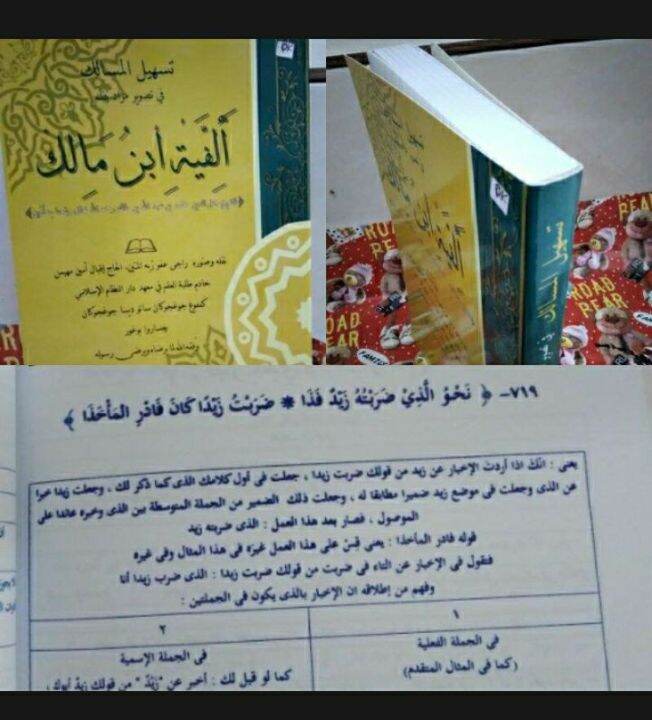 تسهيل المسالك
في تصوير
أَلْفِيَة أبنُ مَالِك
خادم طلبة العلم في معهد دار النظام الإسلامي
وفقه الله لما يرضاه ويرضى رسوله
تسهيل المسالك
ROAD
BEAR
ROAD
BEAR
ROAD
BEAR
٧١٩- ﴿ نَحْوُ الَّذِيْ ضَرَبْتُهُ زَيْدٌ فَذَا * ضَرَبْتُ زَيْدًا كَانَ فَادْرِ المَأْخَذَا ﴾
يعنى : انّك اذا أردت الإخبار عن زيد من قولك ضربت زيدا ، جعلت فى أول كلامك الذى كما ذكر لك ، وجعلت زيدا خبرا
عن الذى وجعلت فى موضع زيد ضميرا مطابقا له ، وجعلت ذلك الضمير من الجملة المتوسطة بين الذى وخبره عائدا على
الموصول ، فصار بعد هذا العمل : الذى ضربته زيد
قوله فادر المأخذا : يعنى قِسْ على هذا العمل غيرَه فى هذا المثال وفى غيره
فتقول فى الإخبار عن التاء فى ضربت من قولك ضربت زيدا : الذى ضرب زيدا أنا
وفهم من إطلاقه ان الإخبار بالذى يكون فى الجملتين :
١
٢
فى الجملة الفعلية
فى الجملة الإسمية
(كما فى المثال المتقدم)
كما لو قيل لك : أخبر عن "زَيْدٌ" من قولك زيد أبوك ،